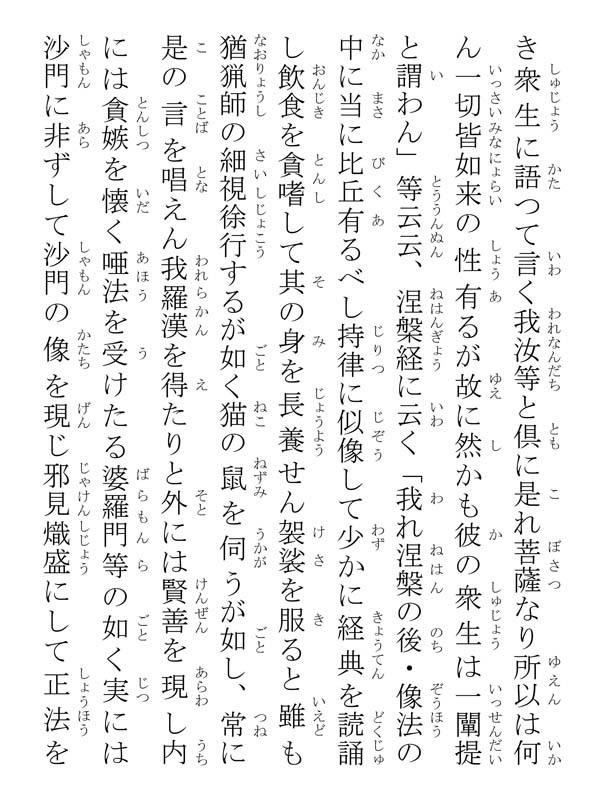 き衆生に語つて言く我汝等と倶に是れ菩薩なり所以は何
ん一切皆如来の性有るが故に然かも彼の衆生は一闡提
と謂わん」等云云、涅槃経に云く「我れ涅槃の後・像法の
中に当に比丘有るべし持律に似像して少かに経典を読誦
し飲食を貪嗜して其の身を長養せん袈裟を服ると雖も
猶猟師の細視徐行するが如く猫の鼠を伺うが如し、常に
是の言を唱えん我羅漢を得たりと外には賢善を現し内
には貪嫉を懐く唖法を受けたる婆羅門等の如く実には
沙門に非ずして沙門の像を現じ邪見熾盛にして正法を